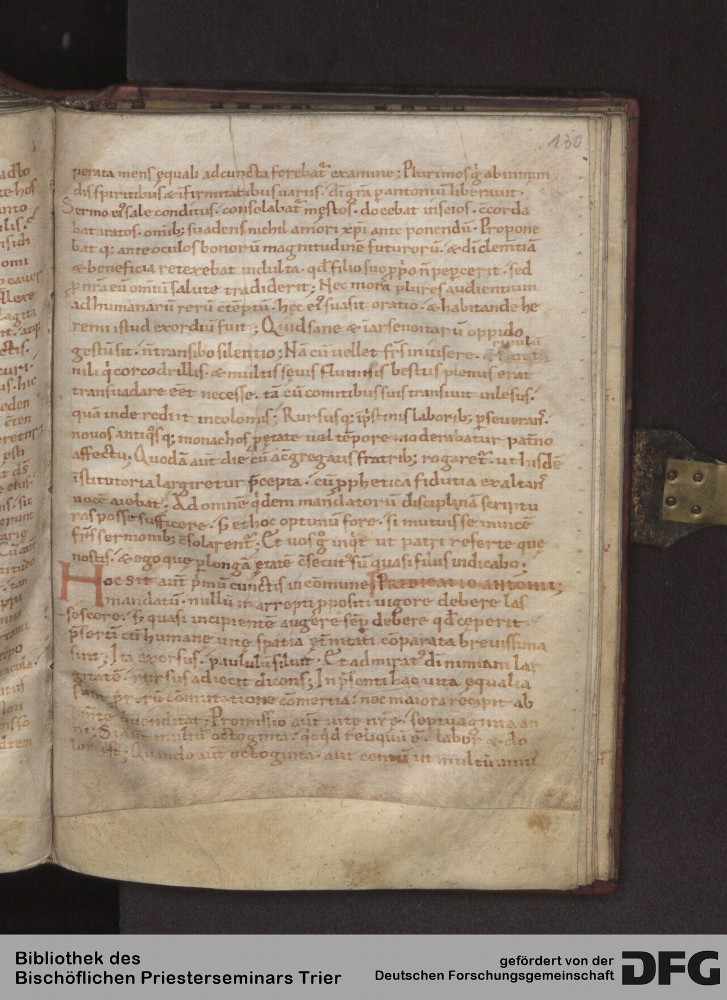 130
perata mens equali ad cuncta ferebat᷑ examine; Plurimos q̇ ab inmun
dis spiritibus & infirmitatibus uariis. di grā p antoniū liberauit.
Sermo ei᷒ sale conditus. consolabat᷑ mestos. docebat inscios. ccorda
bat iratos. omīb; suadens nichil amori xp̄i ante ponendū. Propone
bat q; ante oculos bonorū magnitudinē futurorū. & di clem̄tiā
& beneficia retexebat indulta. qđ filio suo pp̄o n̄ pepcerit. sed
p nr̄a eū omniū salute tradiderit; Nec mora plures audientium
ad humanarū rerū ctēptū. hec ei᷒ suasit oratio. & habitande he
remi istud exordiū fuit; Quid sane & in arsenoitarū oppido
gestū sit. n̄ transibo silentio; Nā cū uellet frs̄ inuisere. &
nili q̇ corcodrillis. & multis seuis fluminis bestiis plenus erat
transuadare eēt necesse. tā cū comitibus suis transiuit inlesus.
quā inde rediit incolomis; Rursus q; ip̄stinis laborib; pseuerans.
nouos antiq̇s q; monachos p etate uel tēpore moderabatur pat̄no
affectu; Quodā aut̄ die cū acgregatis fratrib; rogaret᷑. ut hisdē
istitutoria largiretur p̄cepta. cū pphetica fidutia exaltans
uocē aiebat; Ad omnē q̇dem mandatorū disciplinā scriptu
ras posse sufficere. s; et hoc optimū fore. si mutuis se inuicē
frs̄ sermonib; c̄solarent᷑; Et uos g̊ inq̇t ut patri referte que
nostis. & ego que p longā etatē c̄secut᷒ sū quasi filiis indicabo.
Hoc sit aut̄ p̄mū cunctis in comune PREDICATIO ANTONII;
mandatū. nullū in arrepti p̄positi uigore debere las
sescere. s; quasi incipientē augere semp debere qđ ceperit.
p̄serū cū humane uite spatia et̄nitati cōparata breuissima
sint; Ita exorsus. paululū siluit. Et admirat᷒ di nimiam lar
gitatē. rursus adiecit dicens; In p̄senti hac uita equalia
sunt p̄ rerū cōmutatione cōmertia. nec maiora recipit ab
emente qui uenditat; Promissio aut̄ uite nr̄e. septuaginta an
ni; Si aut̄ multū octoginta. q̇cq̇d reliquū ē. labor & do
lor est; Quando aut̄ octoginta. aut centū ut multū annis
Bibliothek des
Bischöflichen Priesterseminars Trier
gefördert von der
Deutschen Forschungsgemeinschaft
DFG